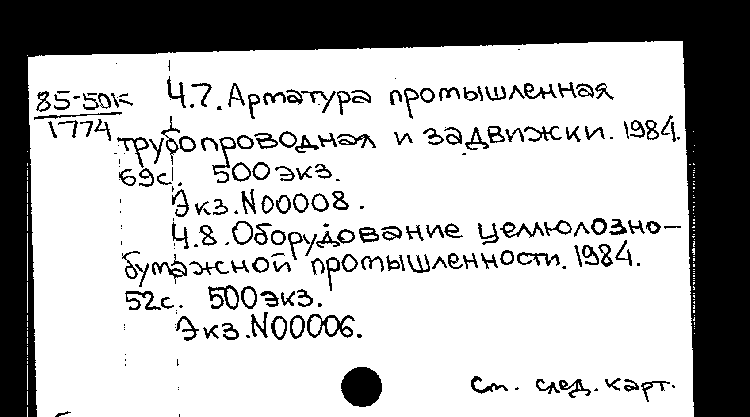 85-50к Ч.7. Арматура промышленная
1774 трубопроводная и задвижки. 1984.
69с. 500 экз.
Экз. N00008.
Ч.8. Оборудование целлюлозно-
бумажной промышленности. 1984.
52с. 500 экз.
Экз. N00006.
См. след. карт.